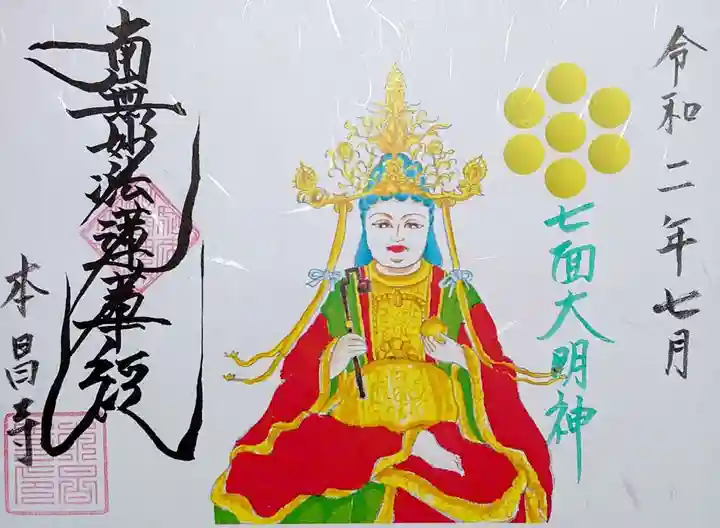 令和二年七月
七面大明神
南無妙法蓮華経
本昌寺